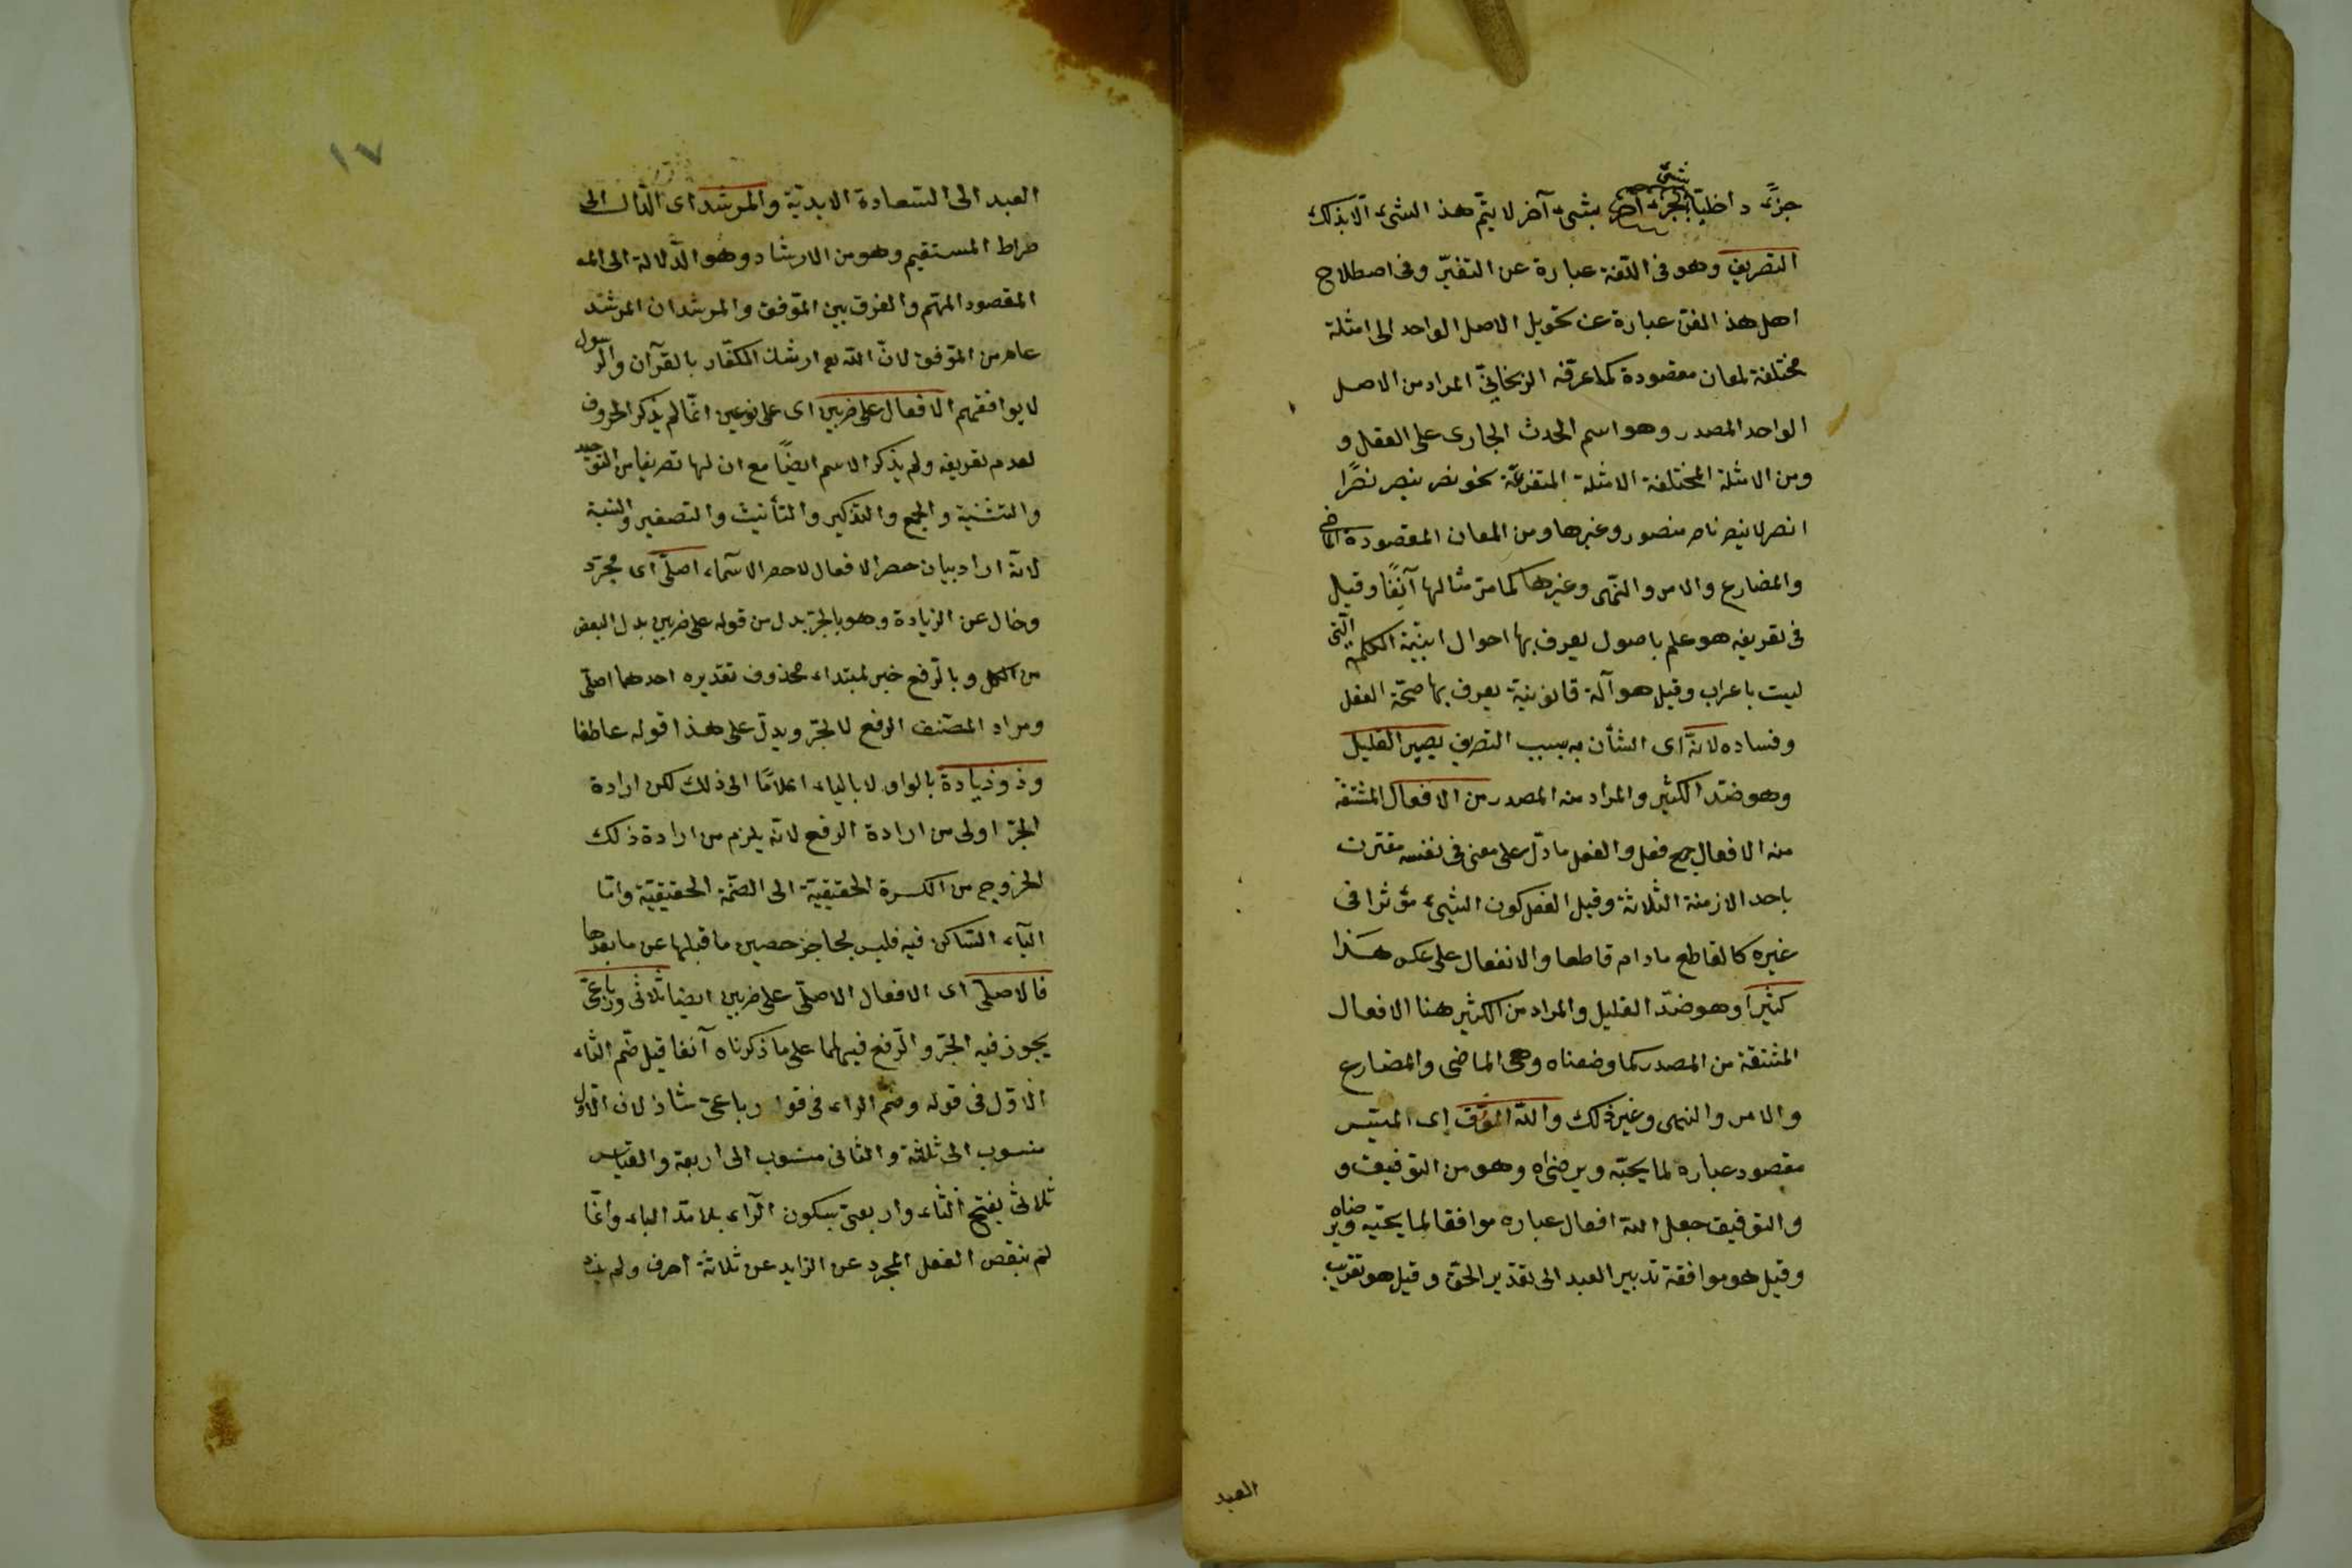 جزء داخليا بشئ آخر لا يتم هذ الشئ الا بذلك
التصريف وهو فى اللغة عبارة عن التغير وفى اصطلاح
اهل هذ الفن عبارة عن تحويل الاصل الواحد الى امثلة
مختلفة لمعان مقصودة كما عرفه الزنجانى المراد من الاصل
الواحد المصدر وهو اسم الحدث الجارى على الفعل و
ومن الامثلة المختلفة الامثلة المتفرعة نحو نصر ينصر نصرًا
انصر لا ينصر ناصر منصور وغيرها ومن المعان المقصودة الماضى
والمضارع والامر والنهى وغيرها كما مر مثالها آنفًا وقيل
فى تعريفه هو علم باصول يعرف بها احوال ابنية الكلمة التى
ليت باعراب وقيل هو آلة قانونية يعرف بها صحة الفعل
وفساده لانه اى الشأن به بسبب التصريف يصير القليل
وهو ضد الكثير والمراد منه المصدر من الافعال المشتقة
منه الافعال جمع فعل والفعل ما دل على معنى فى نفسه مقترن
باحد الازمنة الثلاثة وقيل الفعل كون الشئ مؤثرا فى
غيره كالقاطع مادام قاطعا والانفعال على عكس هذا
كثيرا وهو ضد القليل والمراد من الكثير هنا الافعال
المشتقة من المصدر كما وضعناه وهى الماضى والمضارع
والامر والنهى وغير ذلك والله الموفق اى الميسر
مقصود عباره لما يحبه ويرضاه وهو من التوفيق و
والتوفيق جعل الله افعال عباره موافقا لما يحبه ويرضاه
وقيل هو موافقة تدبير العبد الى تقدير الحق وقيل هو تقريب
العبد
١٧
العبد الى السعادة الابدية والمرشد اى الدال الى
صراط المستقيم وهو من الارشاد وهو الدلالة الى الم
المقصود المهم والفرق بين الموفق والمرشد ان المرشد
عام من الموفق لان الله تع ارشد الكفار بالقرآن والرسول
لا يوافقهم الافعال على ضربين اى على نوعين انما لم يذكر الحروف
لعدم تعريفه ولم يذكر الاسم ايضًا مع ان لها تصريفا من التوحيد
والتثنية والجمع والتذكير والتأنيث والتصغير والنسبة
لانه اراد بيان حصر الافعال لا حصر الاسماء اصلى اى مجرد
وخال عن الزيادة وهو بالجر بدل من قوله على ضربين بدل البعض
من الكل وبالرفع خبر لمبتداء محذوف تقديره احدهما اصلى
ومراد المصنف الرفع لا الجر ويدل على هذا قوله عاطفا
وذو زيادة بالواو لا بالياء اعلامًا الى ذلك لكن ارادة
الجر اولى من ارادة الرفع لانه يلزم من ارادة ذلك
الخروج من الكسرة الحقيقية الى الضمة الحقيقية واما
الياء الساكن فيه فليس بحاجز حصين ما قبلها عن ما بعدها
فالاصلى اى الافعال الاصلى على ضربين ايضا ثلاثى ورباعى
يجوز فيه الجر والرفع فيهما على ما ذكرناه آنفا قيل ضم الثاء
الاول فى قوله وضم الراء فى قوله رباعى شاذ لان الاول
منسوب الى ثلثة والثانى منسوب الى اربعة والقياس
ثلاثى بفتح الثاء واربعى بسكون الراء بلا مد الباء وانما
لم ينقص الفعل المجرد عن الزايد عن ثلاثة احرف ولم يزد